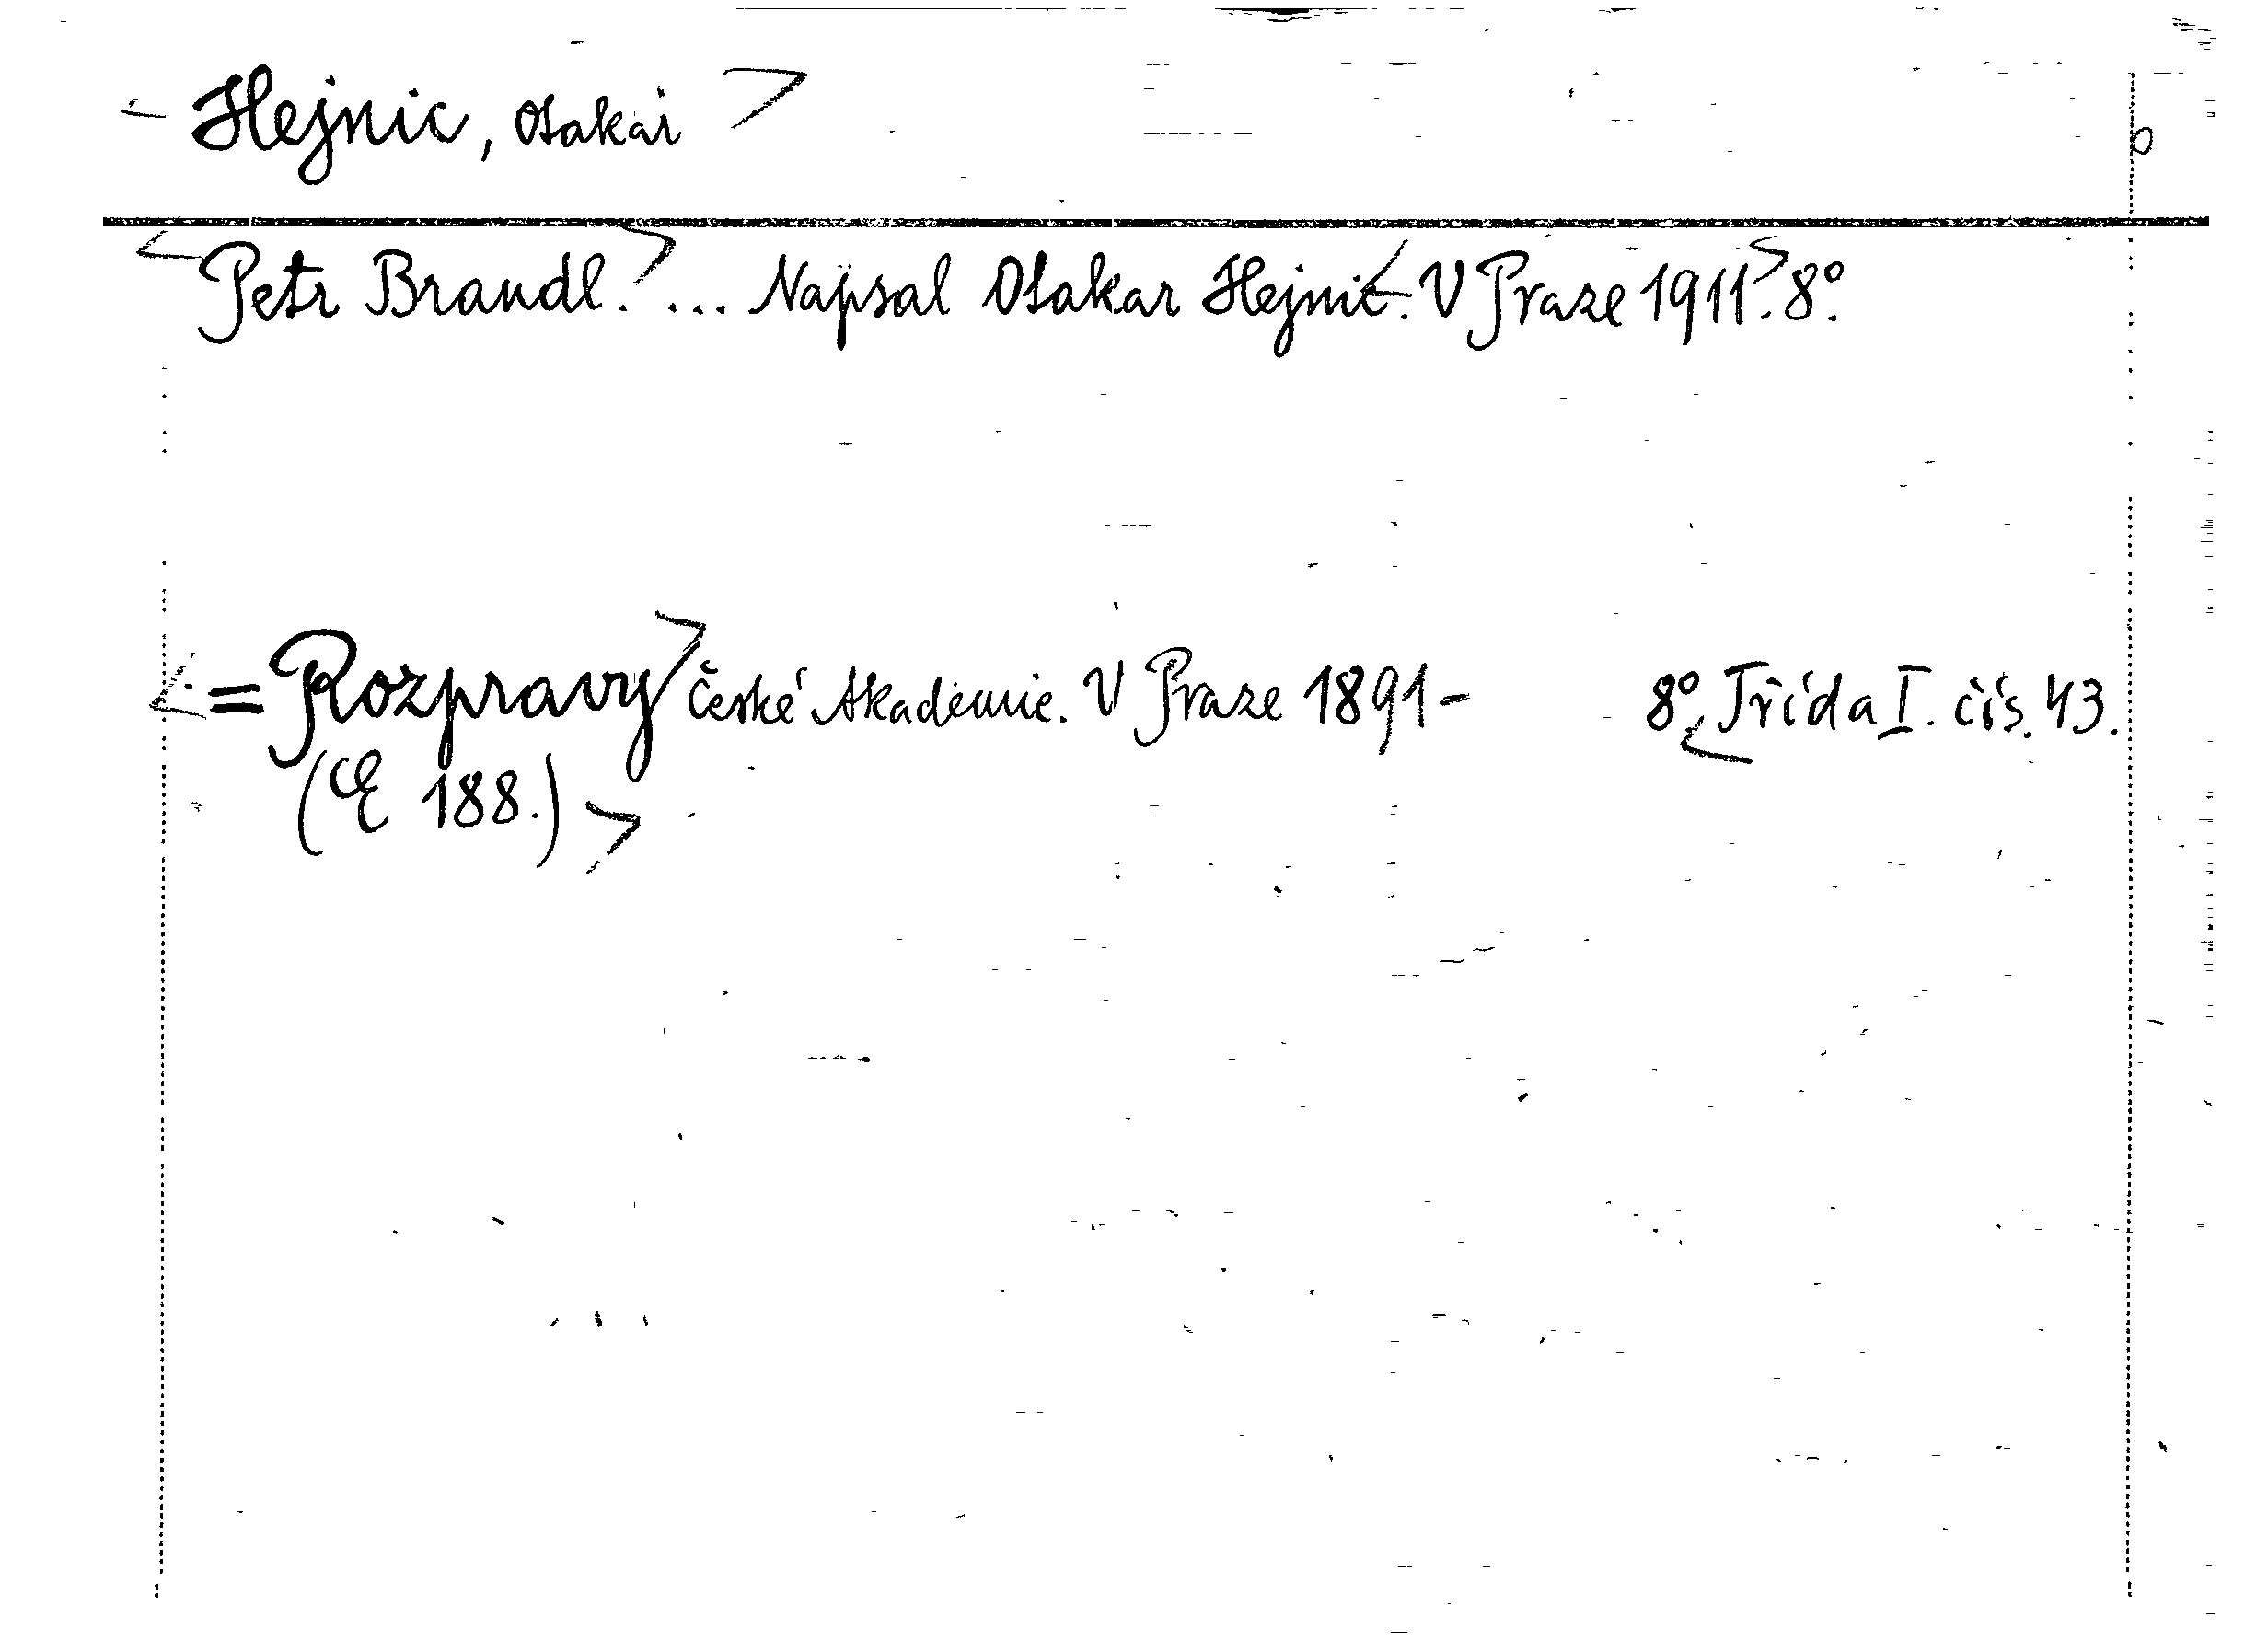 Hejnic, Otakar
Petr Brandl. ... Napsal Otakar Hejnic. V Praze 1911. 8°.
= Rozpravy České Akademie. V Praze 1891- 8°. Třída I. čís. 43.
(E 188.)